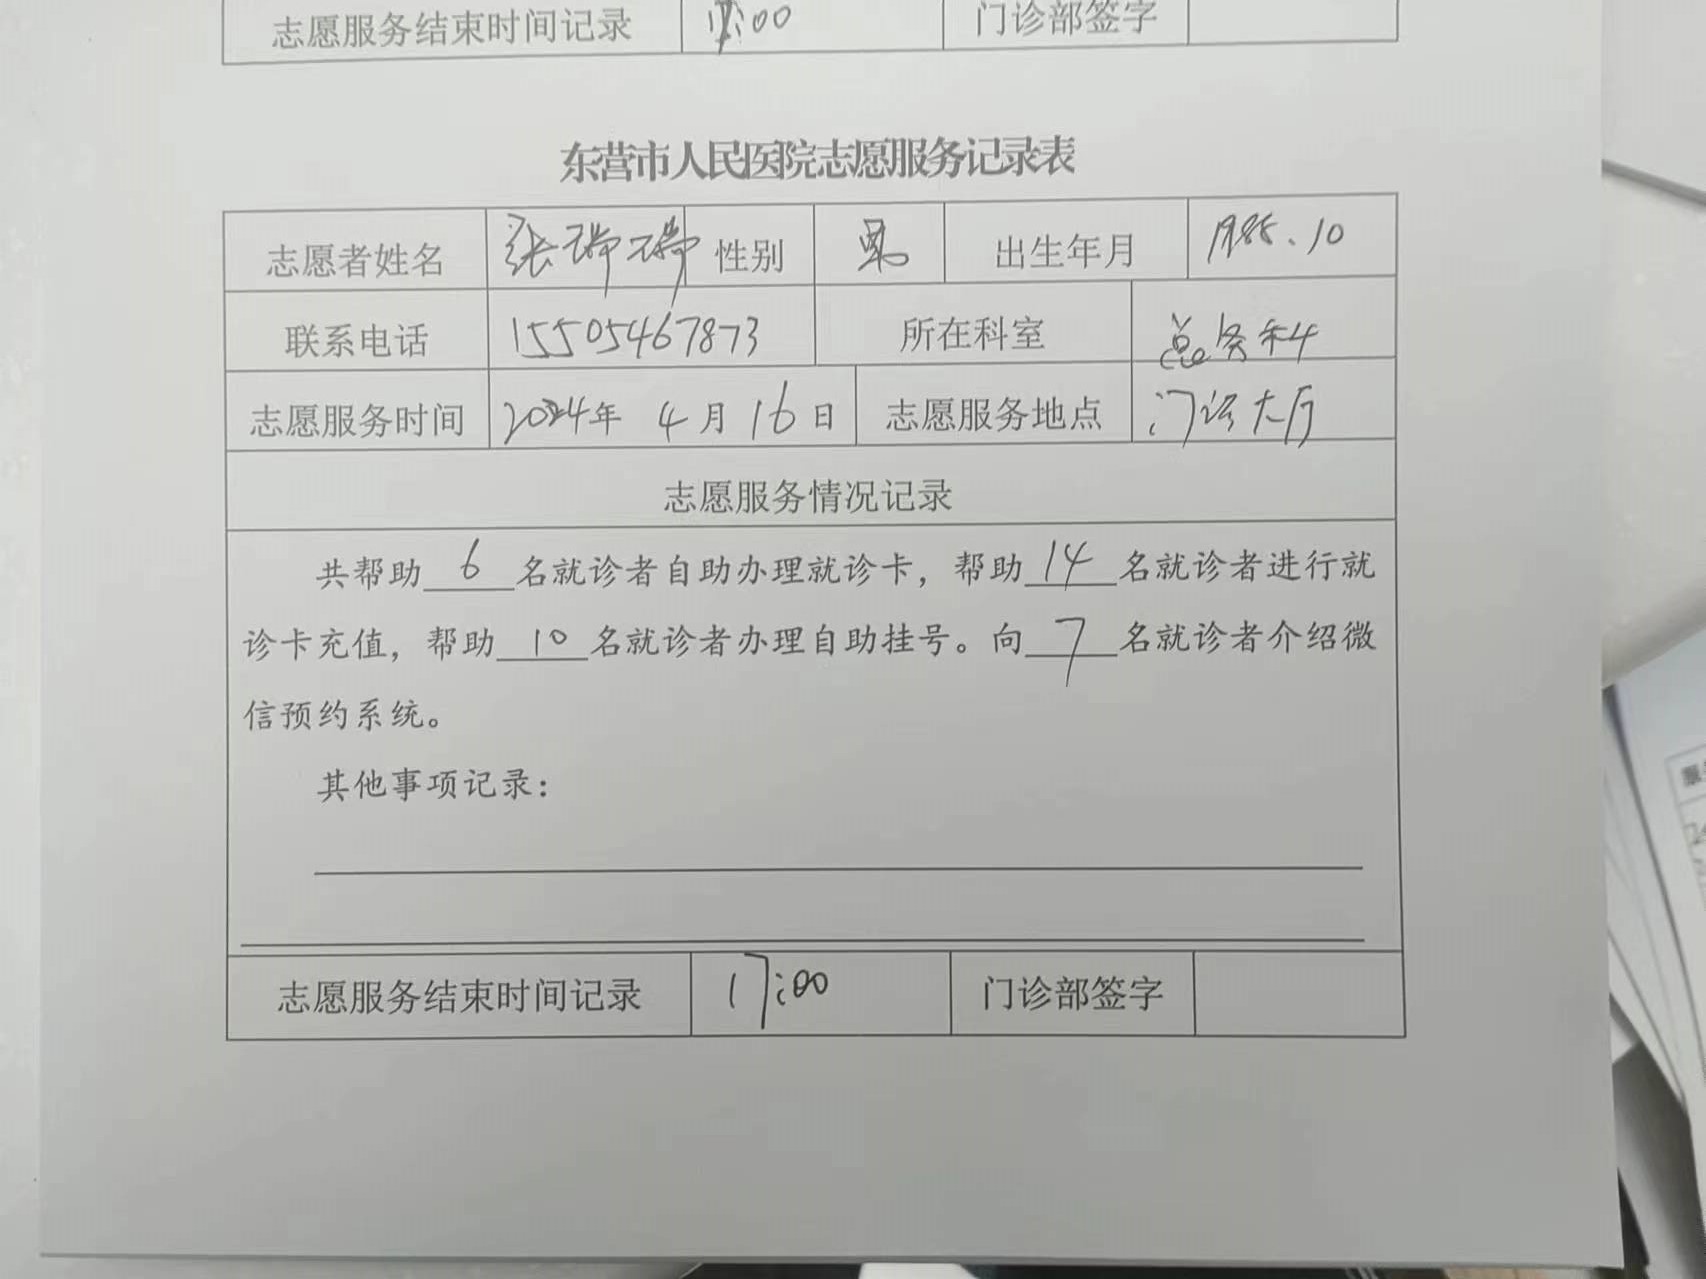 志愿服务结束时间记录 17:00 门诊部签字
东营市人民医院志愿服务记录表
志愿者姓名 张瑞瑞 性别 男 出生年月 1988.10
联系电话 15505467873 所在科室 总务科
志愿服务时间 2024年 4月16日 志愿服务地点 门诊大厅
志愿服务情况记录
共帮助 6 名就诊者自助办理就诊卡，帮助 14 名就诊者进行就
诊卡充值，帮助 10 名就诊者办理自助挂号。向 7 名就诊者介绍微
信预约系统。
其他事项记录：
志愿服务结束时间记录 17:00 门诊部签字